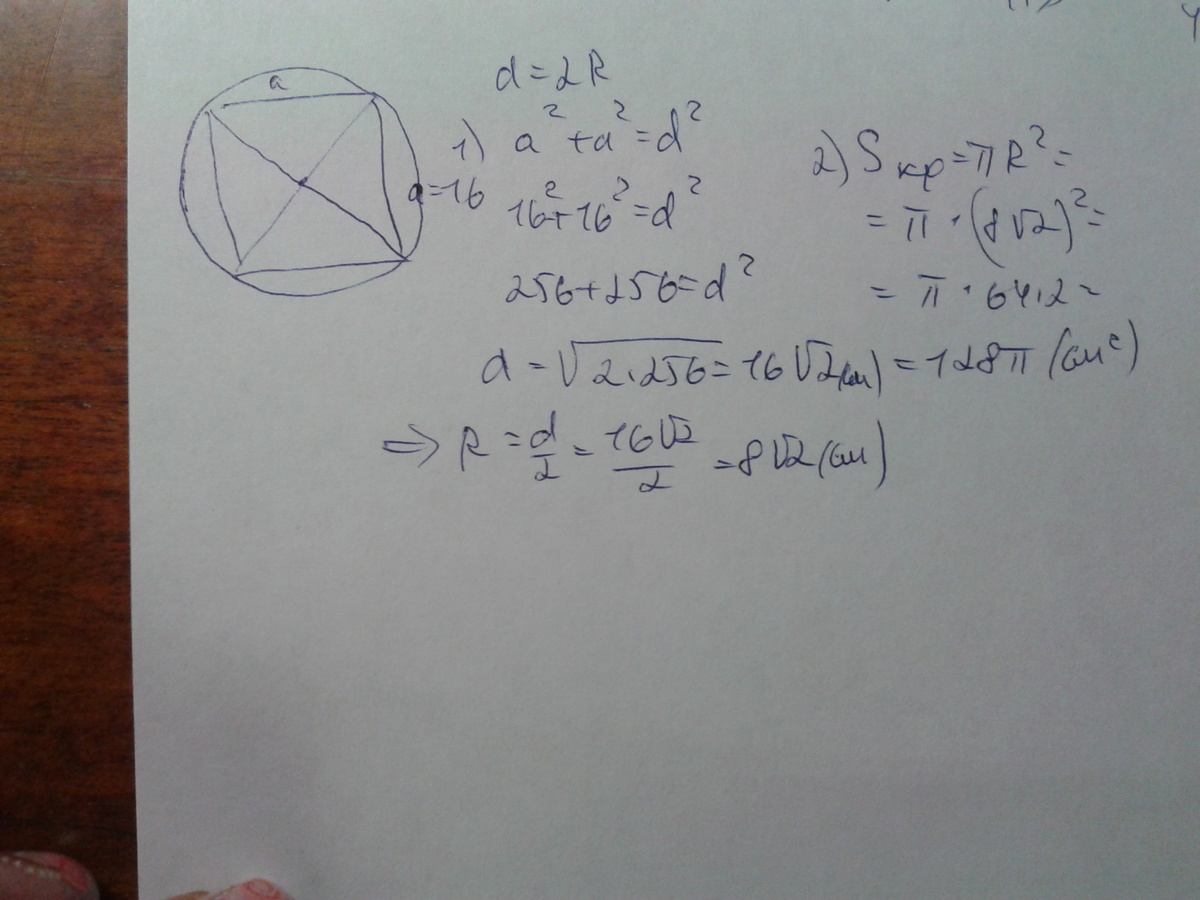 a
a=16
d=2R
1) a²+a²=d²
16²+16²=d²
256+256=d²
d=√2·256=16√2(см)
⇒ R=d/2=16√2/2=8√2(см)
2) Sкр=πR²=
=π·(8√2)²=
=π·64·2=
=128π(см²)